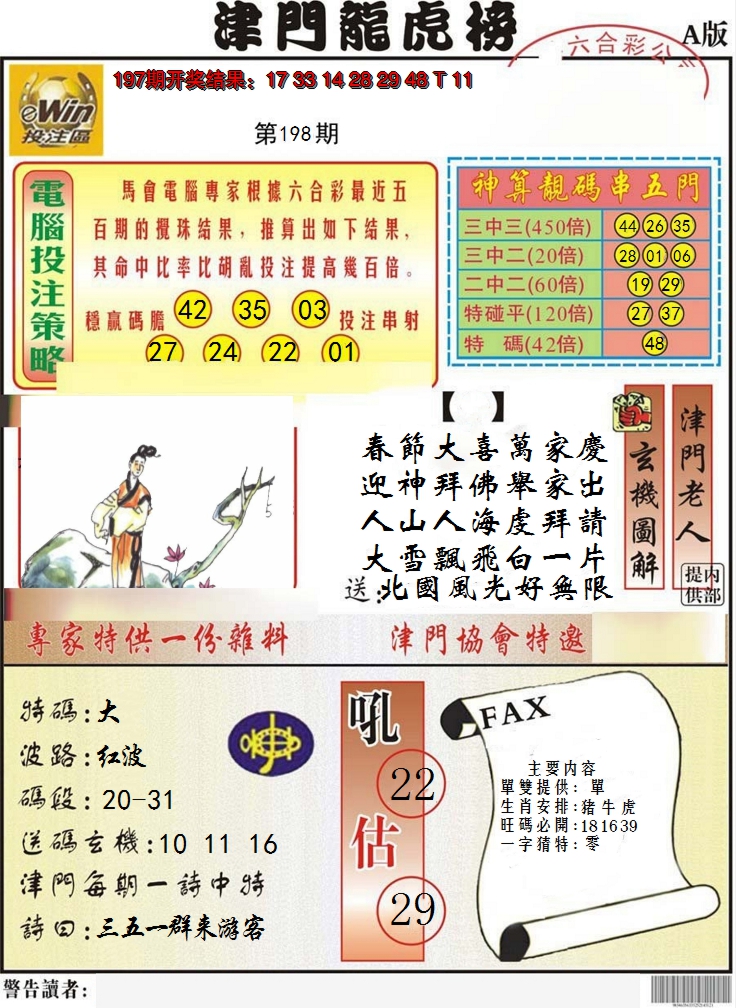 津門龍虎榜
A版
六合彩公
eWin
投注區
197期开奖结果：17 33 14 28 29 48 T 11
第198期
電腦投注策略
馬會電腦專家根據六合彩最近五
百期的攪珠结果，推算出如下结果，
其命中比率比胡亂投注提高幾百倍。
穩贏碼膽 42 35 03 投注串射
27 24 22 01
神算靚碼串五門
三中三(450倍) 44 26 35
三中二(20倍) 28 01 06
二中二(60倍) 19 29
特碰平(120倍) 27 37
特 碼(42倍) 48
【 】
春節大喜萬家慶
迎神拜佛舉家出
人山人海虔拜請
大雪飄飛白一片
送:北國風光好無限
玄機圖解
津門老人
内部提供
專家特供一份雜料
津門協會特邀
特碼:大
波路:红波
碼段:20-31
送碼玄機:10 11 16
津門每期一詩中特
詩曰:三五一群来游客
吼
22
估
29
FAX
主要内容
單雙提供：單
生肖安排:猪牛虎
旺碼必開:181639
一字猜特:零
警告讀者: